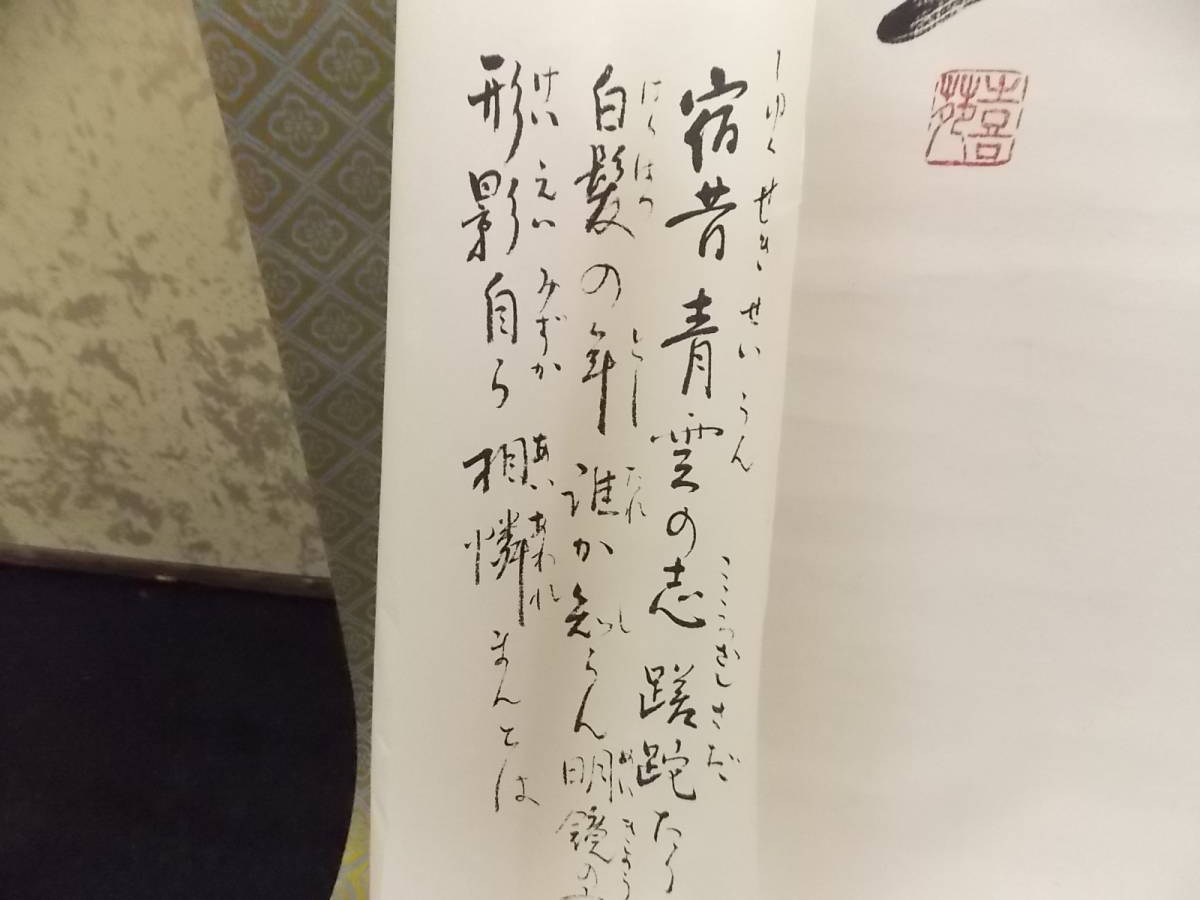 宿昔青雲の志蹉跎たり
しゆくせきせいうんこころざしさだ
白髪の年誰か知らん明鏡の
はくはつとしたれしめいきよう
形影自ら相憐まんとは
けいえいみずかあいあわれ